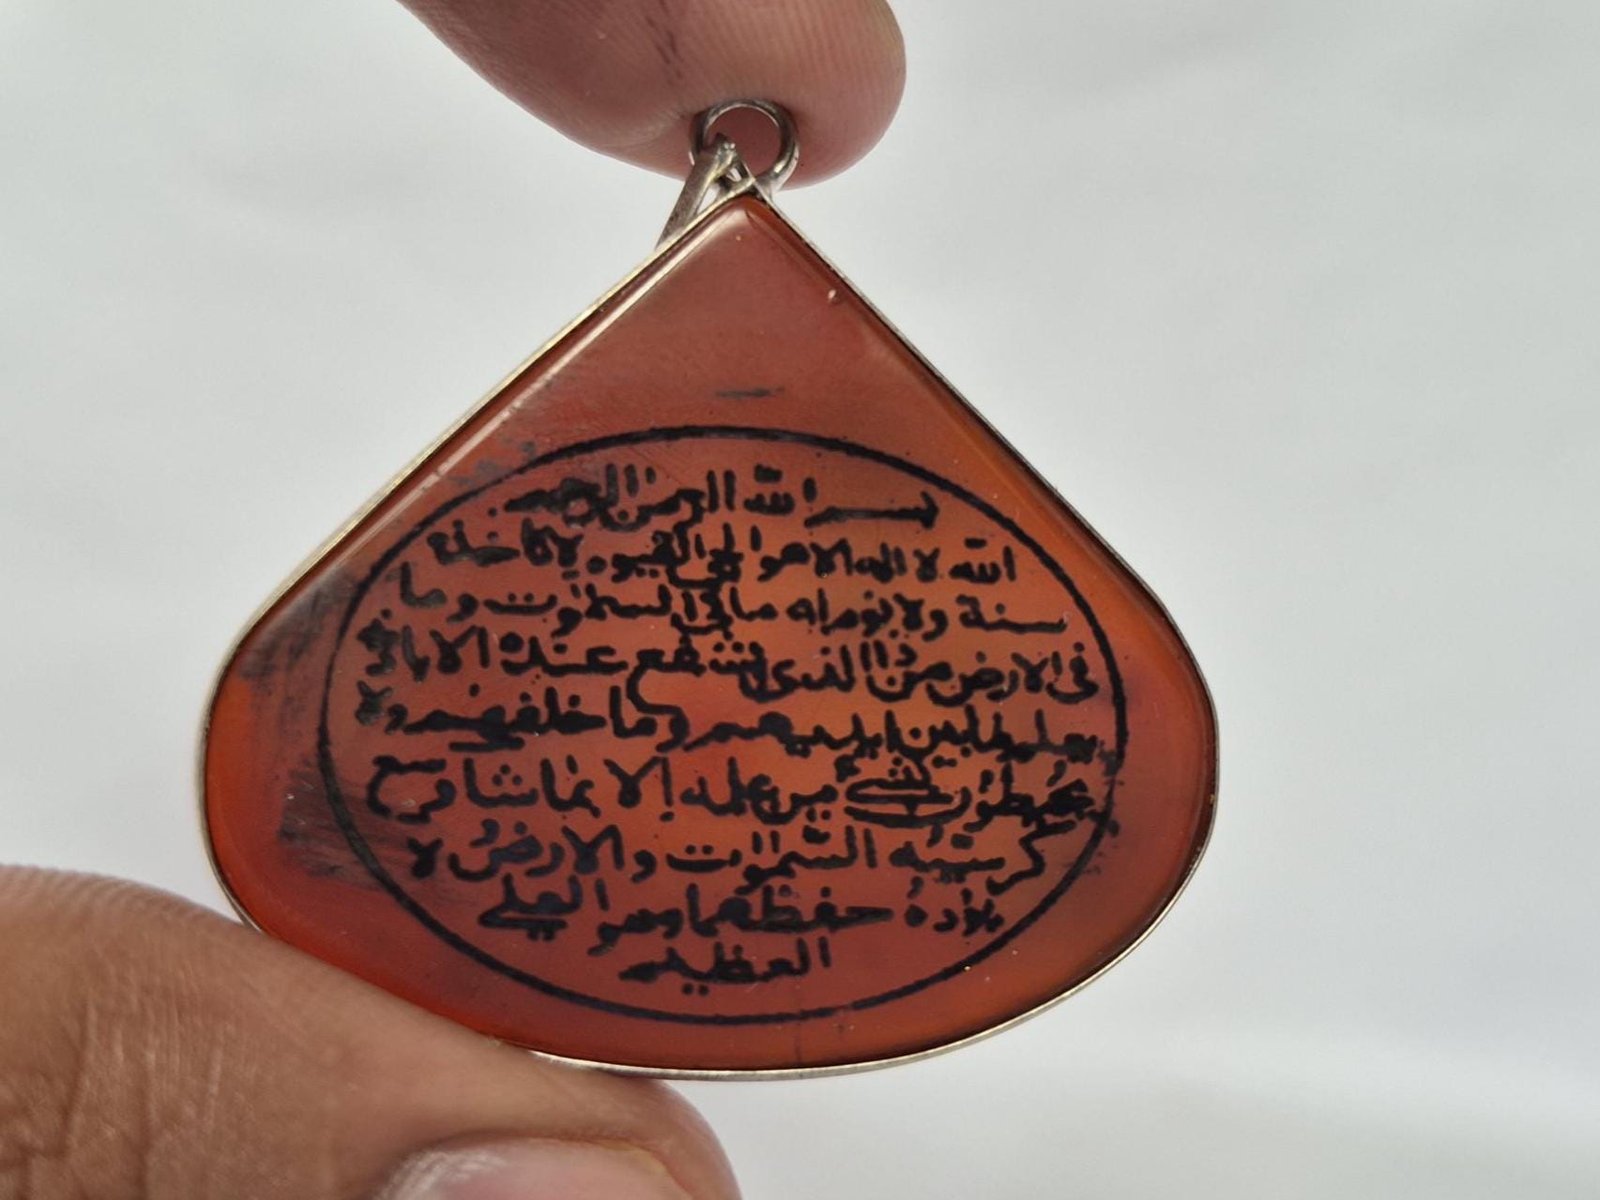 بسم الله الرحمن الرحيم
الله لا اله الا هو الحي القيوم لا تاخذه
سنة ولا نوم له ما في السموات وما
في الارض من ذا الذي يشفع عنده الا باذ
يعلم ما بين ايديهم وما خلفهم ولا
يحيطون بشيء من علمه الا بما شا وسع
كرسيه السموات والارض لا
يؤده حفظهما وهو العلي
العظيم